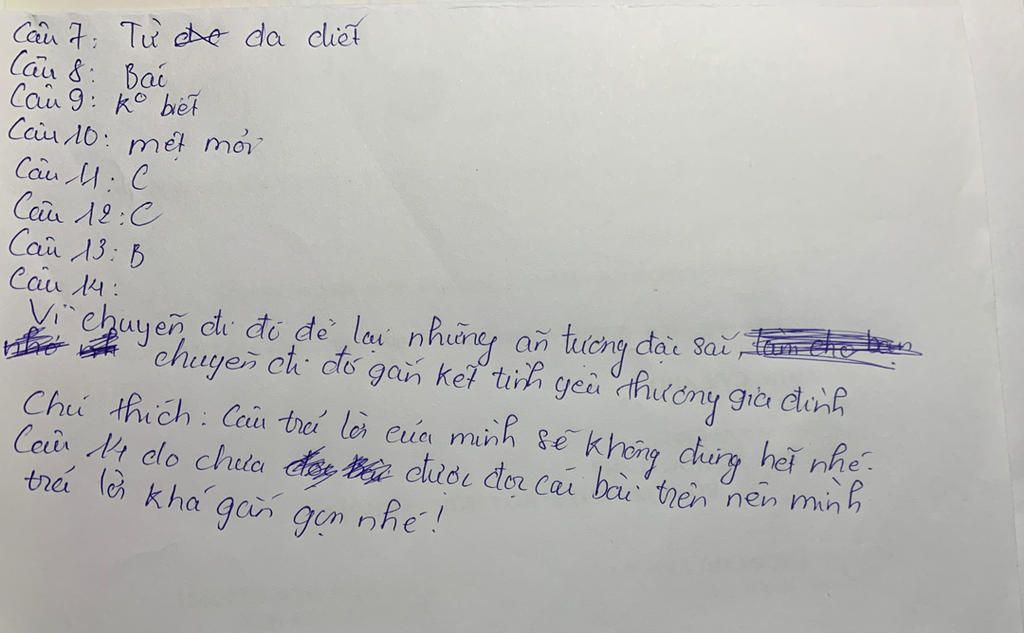 Câu 7: Từ da diết
Câu 8: Bái
Câu 9: Kº biết
Câu 10: mệt mỏi
Câu 11: C
Câu 12: C
Câu 13: B
Câu 14:
Vì chuyến đi đó để lại những ấn tượng đặc sắc,
chuyến đi đó gắn kết tình yêu thương gia đình
Chú thích: Câu trả lời của mình sẽ không đúng hết nhé.
Câu 14 do chưa được đọc cái bài trên nên mình
trả lời khá gắn gọn nhé!